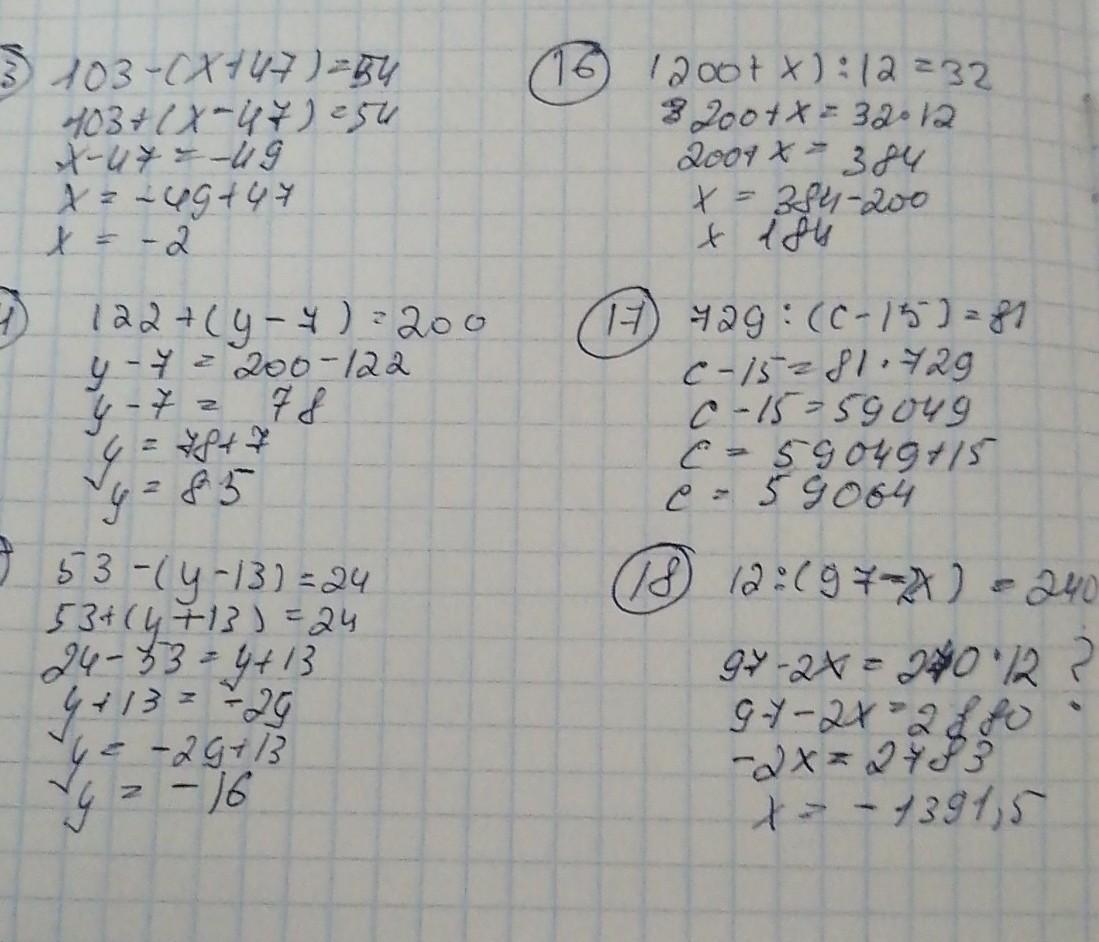 3) 103-(x+47)=54
103+(x-47)=54
x-47=-49
x = -49+47
x = -2
122+(y-7)=200
y-7 = 200-122
y-7 = 78
y = 78+7
y = 85
53-(y-13)=24
53+(y+13)=24
24-53=y+13
y+13=-29
y= -29+13
y = -16
16 (200+x):12=32
200+x=32·12
200+x= 384
x = 384-200
x 184
17 729:(c-15)=81
c-15=81·729
c-15=59049
c= 59049+15
c= 59064
18 12:(97-2x) = 240
97-2x=240·12 ?
97-2x=2880
-2x=2783
x= -1391,5